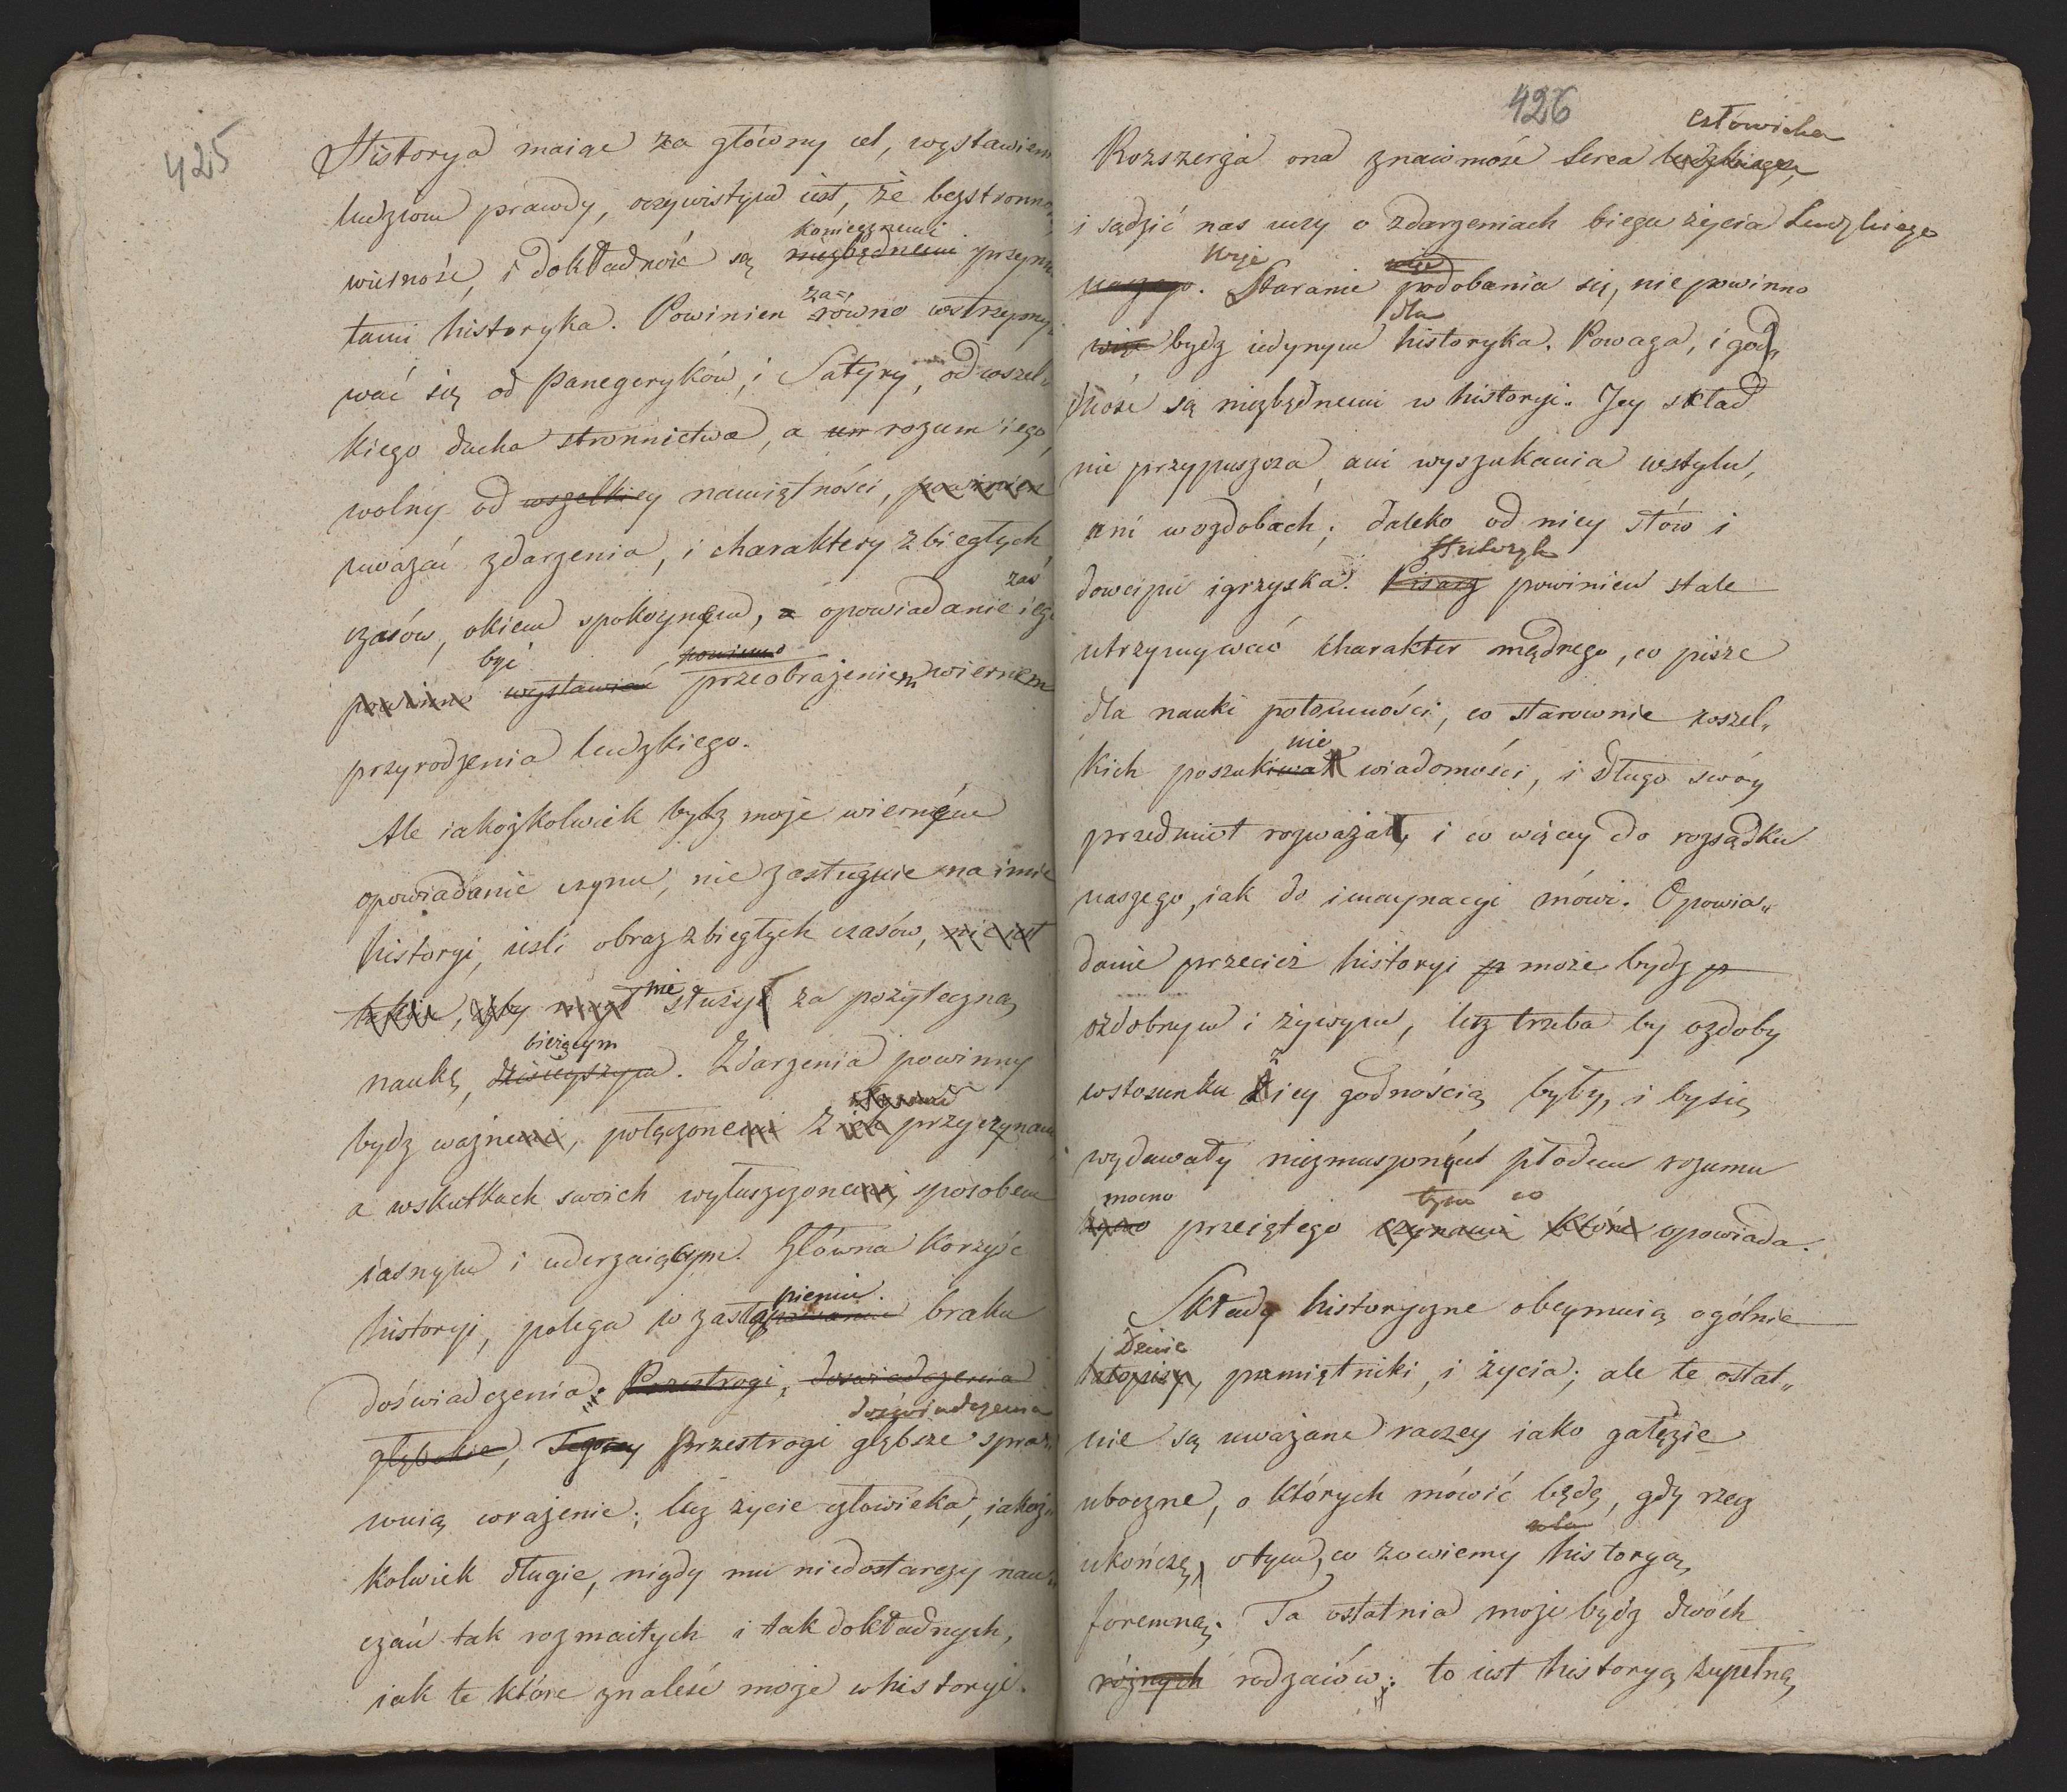 425
Historya maiąc za główny cel, wystawien
ludziom prawdy, oczywistym iest, że bezstronno
koniecznemi
wierność, i dokładność są niezbędnemi przymi
za=
tami historyka. Powinien równo wstrzymy
wać się od Panegeryków, i Satyry, od wszel
kiego ducha stronnictwa, a um rozum iego,
wolny od wszelkiey namiętności, powinien
uważać zdarzenia, i charaktery zbiegłych
zaś
czasów, okiem spokoynem, a opowiadanie ieg
być powinno
powinno wystawiać przeobrażeniem wiernem
przyrodzenia ludzkiego.
Ale iakożkolwiek bydz może wierném
opowiadanie czynu, nie zasługuie na imie
historyi, ieśli obraz zbiegłych czasów, nie iest
nie
takim, żeby mógł służył za pożyteczną
bieżącym
naukę, dzisieyszym. Zdarzenia powinny
bydz ważnemi, połączonemi z ich przyczynam
a wskutkach swoich wyłuszczonemi, sposobem
iasnym i uderzaiącym. Główna korzyść
pieniu.
historyi, polega w zastąpowaniu braku
doświadczenia. Przestrogi, doswiadczenia
doświadczenia
głębokie, Tegocey przestrogi głębsze spra
wuią wrażenie; lecz życie człowieka, iakoż„
kolwiek długie, nigdy mu niedostarczy nau„
czań tak rozmaitych i tak dokładnych,
iak te które znaleść może w historyi.
426
człowieka
Rozszerza ona znaiomość serca ludzkiego,
i sądzić nas uczy o zdarzeniach biegu życia Ludzkiego
Więc więc
naszego. Staranie podobania się, nie powinno
dla
więc bydz iedynym historyka. Powaga, i god„
ność są niezbędnemi w historyi. Jey skład
nie przypuszcza, ani wyszukania wstylu,
ani wozdobach; daleko od niey słów i
dowcipu igrzyska. Pisarz powinien stale
utrzymywać charakter mądrego, co pisze
dla nauki potomności, co starownie wszel„
nie
kich poszukiwał wiadomości, i długo swóy
przedmiot rozważał, i co więcey do rozsądku
naszego, iak do imaynacyi mówi. Opowia„
danie przecież historyi p może bydz p
ozdobnym i żywym, lecz trzeba by ozdoby
z
wstosunku z iey godnością były, i by się
wydawały niezmuszonym płodem rozumu
mocno tym co
żywo przeiętego czynami które opowiada.
Składy historyczne obeymuią ogólnie
Dzieie
latopisy, pamiętniki, i życia; ale te ostat„
nie są uważane raczey iako gałęzie
uboczne, o których mówić będę, gdy rzecz
ukończę, otym, co zowiemy historyą
foremną. Ta ostatnia może bydz dwóch
różnych rodzaiów: to iest historyą zupełną,